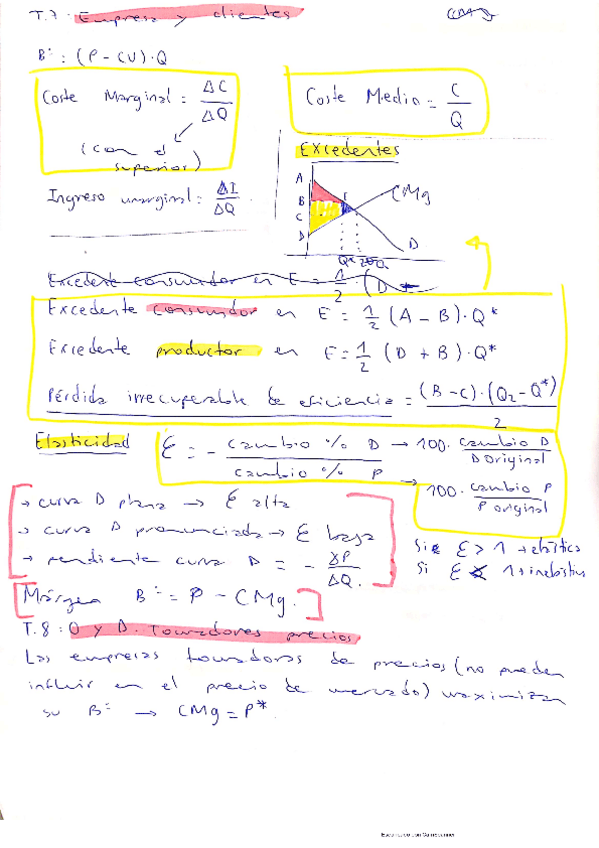 T.7: Empresa y clientes
CMg
Bº: (P - CU)·Q
Coste Marginal: ΔC/ΔQ
(con el superior)
Coste Medio = C/Q
Ingreso marginal: ΔI/ΔQ
Excedentes
A
B
C
D
E
CMg
D
Q*
Excedente consumidor en E = 1/2 · (D
Excedente consumidor en E = 1/2 (A - B)·Q*
Excedente productor en E = 1/2 (D + B)·Q*
Pérdida irrecuperable de eficiencia = (B-C)·(Q2-Q*)/2
Elasticidad
Ɛ = - cambio % D / cambio % P
→ 100. cambio D / D original
→ 100. cambio P / P original
→ curva D plana → Ɛ alta
→ curva D pronunciada → Ɛ baja
→ pendiente curva D = - ΔP/ΔQ.
Si Ɛ > 1 + elástica
Si Ɛ < 1 + inelástica
Márgen Bº = P - CMg.
T.8: O y D. Tomadores precios
Las empresas tomadoras de precios (no pueden
influir en el precio de mercado) maximizan
su Bº → CMg = P*
Escaneado con CamScanner